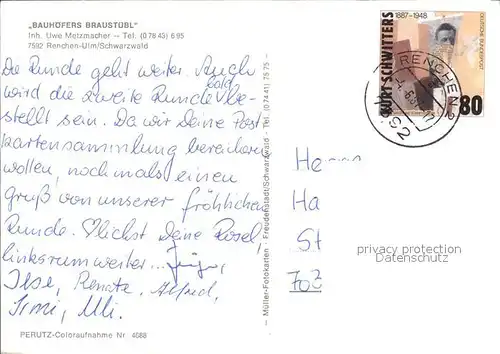 „BAUHÖFERS BRAUSTÜBL"
Inh. Uwe Metzmacher – Tel. (0 78 43) 6 95
7592 Renchen-Ulm/Schwarzwald
Die Runde geht weiter. Auch
wird die zweite Runde bald be-
stellt sein. Da wir Deine Post-
kartensammlung bereichern
wollen, nochmals einen
Gruß von unserer fröhlichen
Runde. Herzlichst Deine Rosel,
linksrum weiter...
Ilse, Renate, Alfred,
Irmi, Uli.
PERUTZ-Coloraufnahme Nr. 4688
– Müller-Fotokarten · Freudenstadt/Schwarzwald · Tel. (0 74 41) 75 75 –
KURT SCHWITTERS
1887-1948
DEUTSCHE BUNDESPOST
80
RENCHEN 2
7592
Herrn
Ha
St
privacy protection
Datenschutz